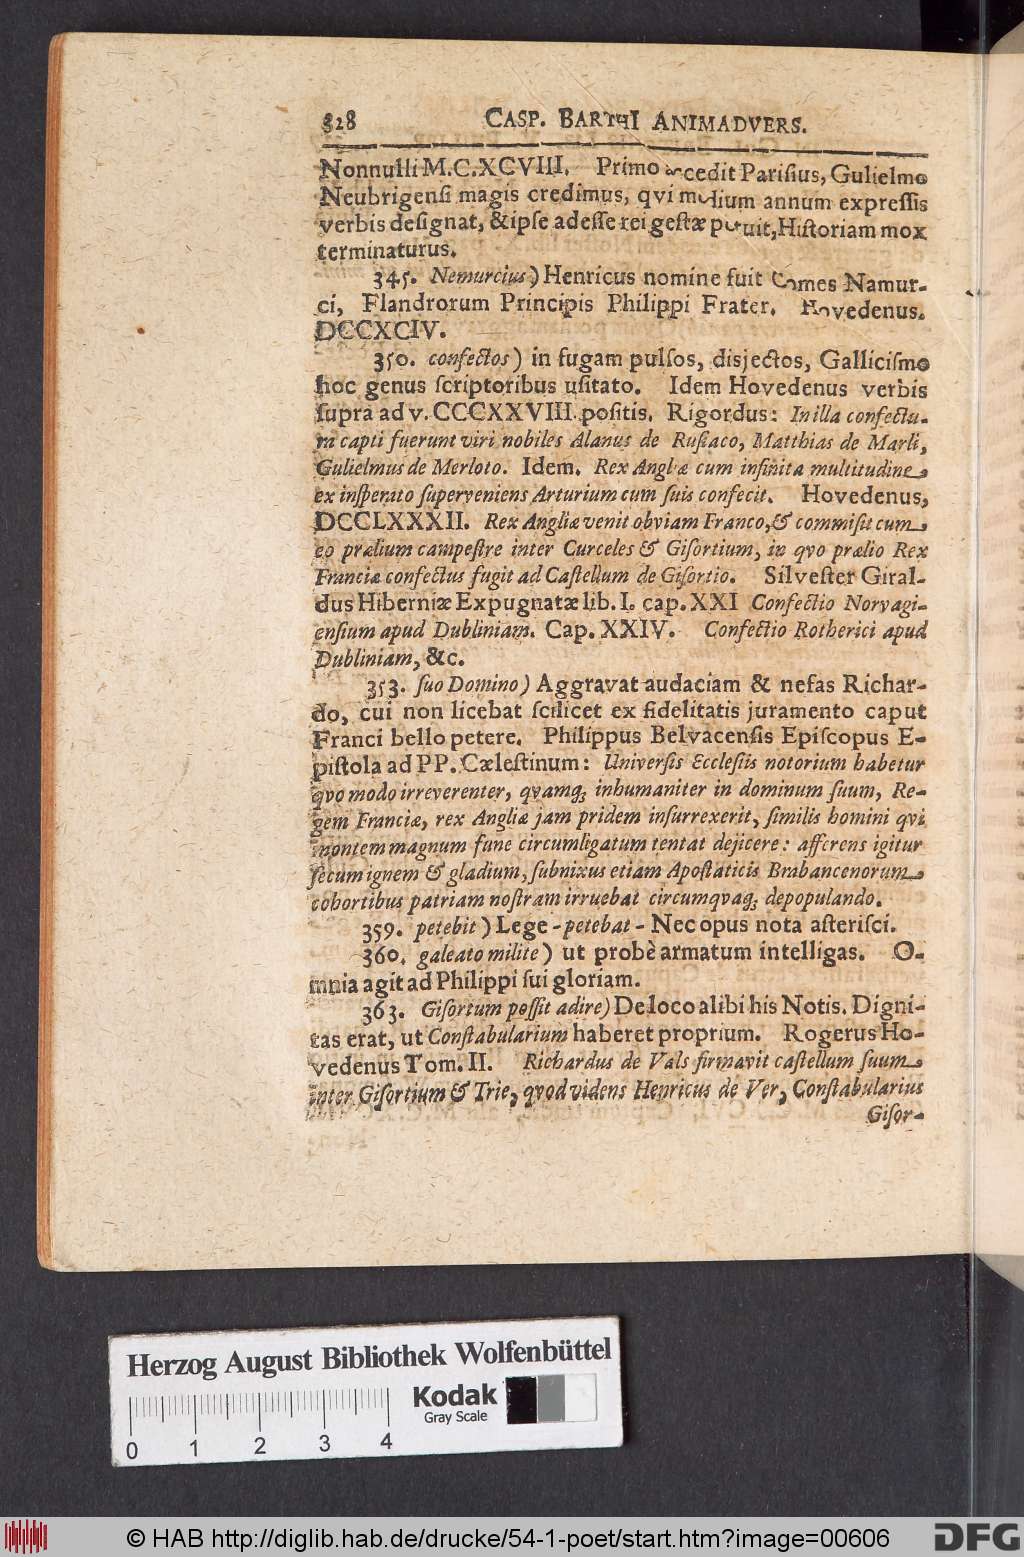 328 CASP. BARTHI ANIMADVERS.
Nonnulli M.C.XCVIII. Primo accedit Parisius, Gulielmo
Neubrigensi magis credimus, qvi medium annum expressis
verbis designat, & ipse adesse rei gestæ potuit, Historiam mox
terminaturus.
345. Nemurcius) Henricus nomine fuit Comes Namur-
ci, Flandrorum Principis Philippi Frater. Hovedenus.
DCCXCIV.
350. confectos) in fugam pulsos, disjectos, Gallicismo
hoc genus scriptoribus usitato. Idem Hovedenus verbis
supra ad v. CCCXXVIII. positis. Rigordus: In illa confectu-
ra capti fuerunt viri nobiles Alanus de Rusiaco, Matthias de Marli,
Gulielmus de Merloto. Idem. Rex Angliæ cum infinita multitudine
ex insperato superveniens Arturium cum suis confecit. Hovedenus,
DCCLXXXII. Rex Angliæ venit obviam Franco, & commisit cum
eo prælium campestre inter Curceles & Gisortium, in qvo prælio Rex
Franciæ confectus fugit ad Castellum de Gisortio. Silvester Giral-
dus Hiberniæ Expugnatæ lib. I. cap. XXI Confectio Norvagi-
ensium apud Dubliniam. Cap. XXIV. Confectio Rotherici apud
Dubliniam, &c.
353. suo Domino) Aggravat audaciam & nefas Richar-
do, cui non licebat scilicet ex fidelitatis juramento caput
Franci bello petere. Philippus Belvacensis Episcopus E-
pistola ad PP. Cælestinum: Universis Ecclesiis notorium habetur
qvo modo irreverenter, qvamq; inhumaniter in dominum suum, Re-
gem Franciæ, rex Angliæ jam pridem insurrexerit, similis homini qvi
montem magnum fune circumligatum tentat dejicere: afferens igitur
secum ignem & gladium, subnixus etiam Apostaticis Brabancenorum
cohortibus patriam nostram irruebat circumqvaq; depopulando.
359. petebit) Lege - petebat - Nec opus nota asterisci.
360. galeato milite) ut probè armatum intelligas. O-
mnia agit ad Philippi sui gloriam.
363. Gisortum possit adire) De loco alibi his Notis. Digni-
tas erat, ut Constabularium haberet proprium. Rogerus Ho-
vedenus Tom. II. Richardus de Vals firmavit castellum suum
inter Gisortium & Trie, qvod videns Henricus de Ver, Constabularius
Gisor-
Herzog August Bibliothek Wolfenbüttel
Kodak
Gray Scale
0 1 2 3 4
© HAB http://diglib.hab.de/drucke/54-1-poet/start.htm?image=00606
DFG